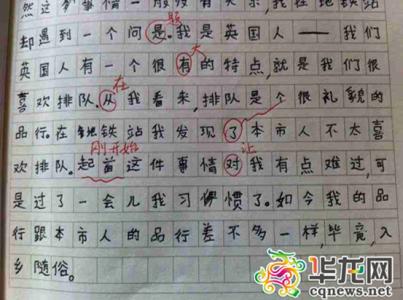 然这
事情一般没有关系,我在地铁站
却遇到一个问是.我是英国人——我们
题
英国人有一个很有的特点,就是我们很
大
喜欢排队.从我看来,排队是个很礼貌的
在
品行.在地铁站我发现了本市人不太喜
刚开始
欢排队.起首这件事情对我有点难过,可
让
是过了一会儿我习惯了.如今我的品
行跟本市人的品行差不多一样,毕竟,入
乡随俗。
华龙网
cqnews.net